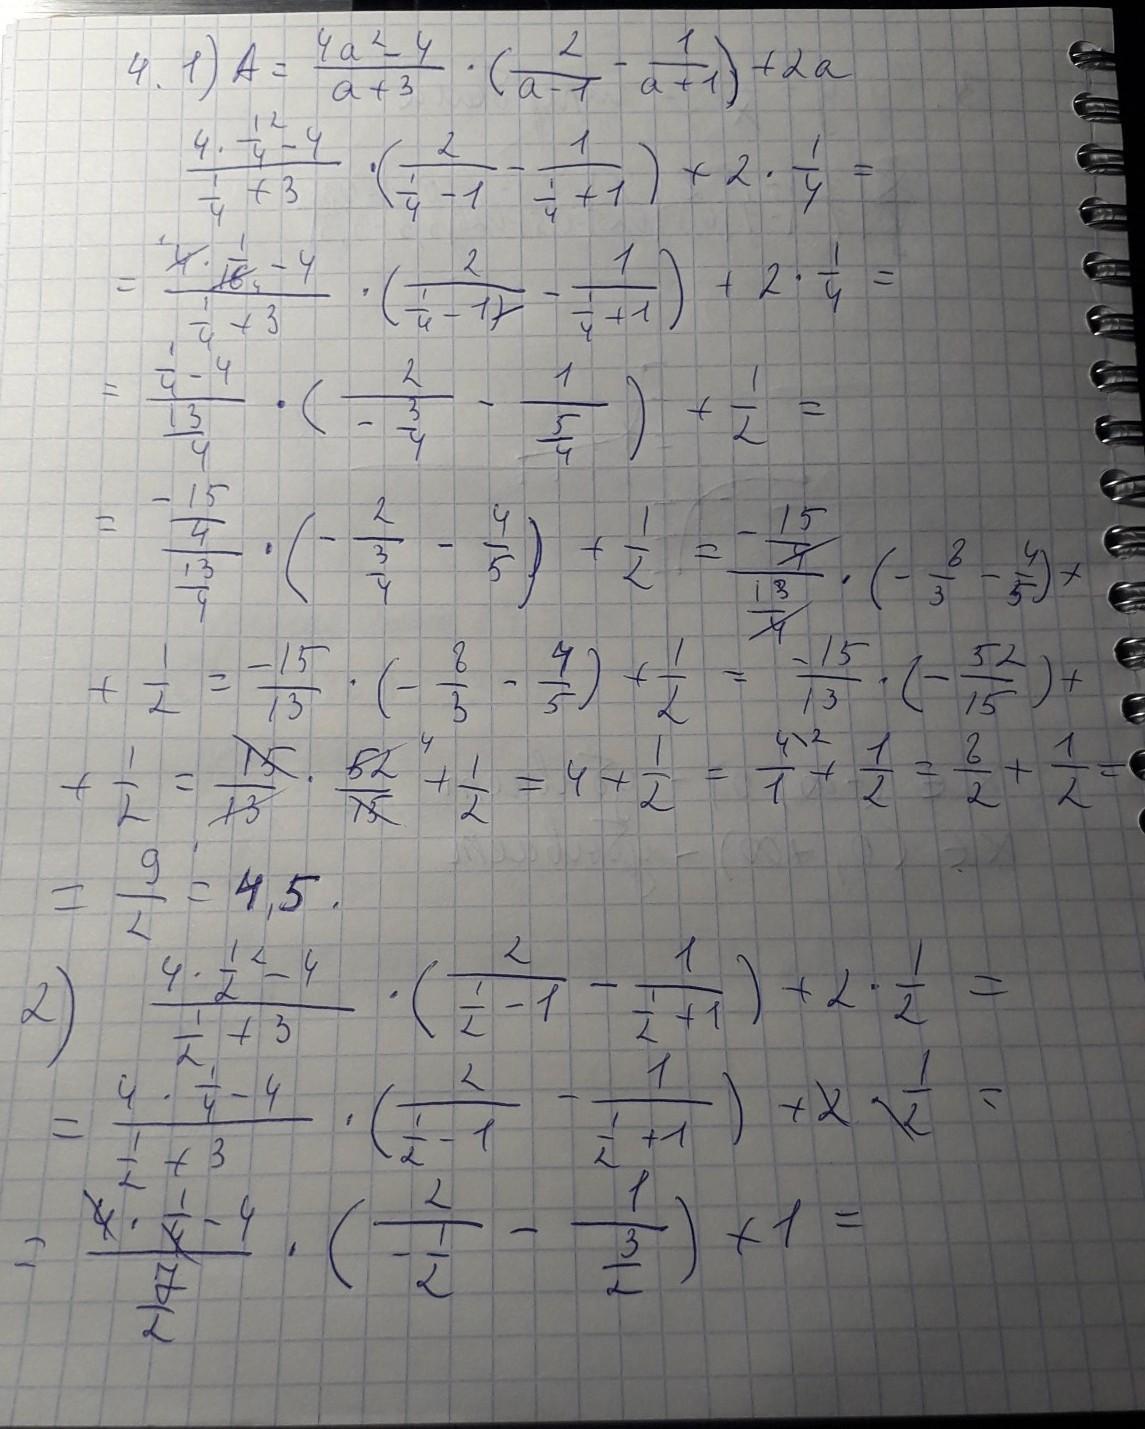 4. 1) A = (4a² - 4)/(a + 3) · (2/(a - 1) - 1/(a + 1)) + 2a
(4 · 1/4² - 4)/(1/4 + 3) · (2/(1/4 - 1) - 1/(1/4 + 1)) + 2 · 1/4 =
= (4 · 1/16 - 4)/(1/4 + 3) · (2/(1/4 - 1) - 1/(1/4 + 1)) + 2 · 1/4 =
= (1/4 - 4)/(13/4) · (2/(-3/4) - 1/(5/4)) + 1/2 =
= (-15/4)/(13/4) · (-2/(3/4) - 4/5) + 1/2 = (-15/4)/(13/4) · (-8/3 - 4/5) +
+ 1/2 = -15/13 · (-8/3 - 4/5) + 1/2 = -15/13 · (-52/15) +
+ 1/2 = 15/13 · 52/15 ⁴ + 1/2 = 4 + 1/2 = 4\2/1 + 1/2 = 8/2 + 1/2 =
= 9/2 = 4,5.
2) (4 · 1/2² - 4)/(1/2 + 3) · (2/(1/2 - 1) - 1/(1/2 + 1)) + 2 · 1/2 =
= (4 · 1/4 - 4)/(1/2 + 3) · (2/(1/2 - 1) - 1/(1/2 + 1)) + 2 · 1/2 =
= (4 · 1/4 - 4)/(7/2) · (2/(-1/2) - 1/(3/2)) + 1 =